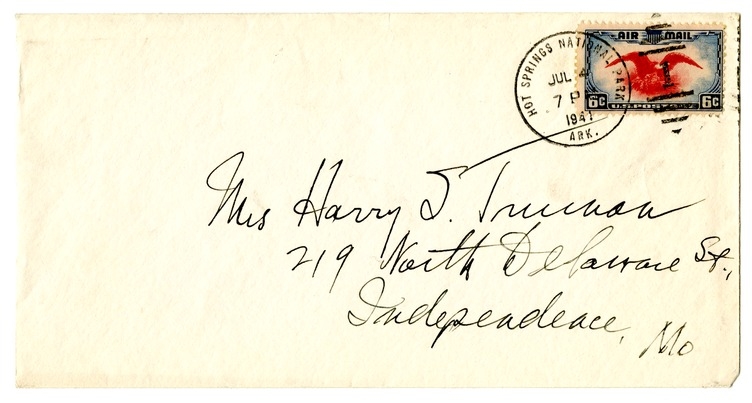 AIR MAIL
6c U.S. POSTAGE 6c
HOT SPRINGS NATIONAL PARK
JUL 4
7 P
1941
ARK.
Mrs Harry S. Truman
219 North Delaware St.,
Independence, Mo